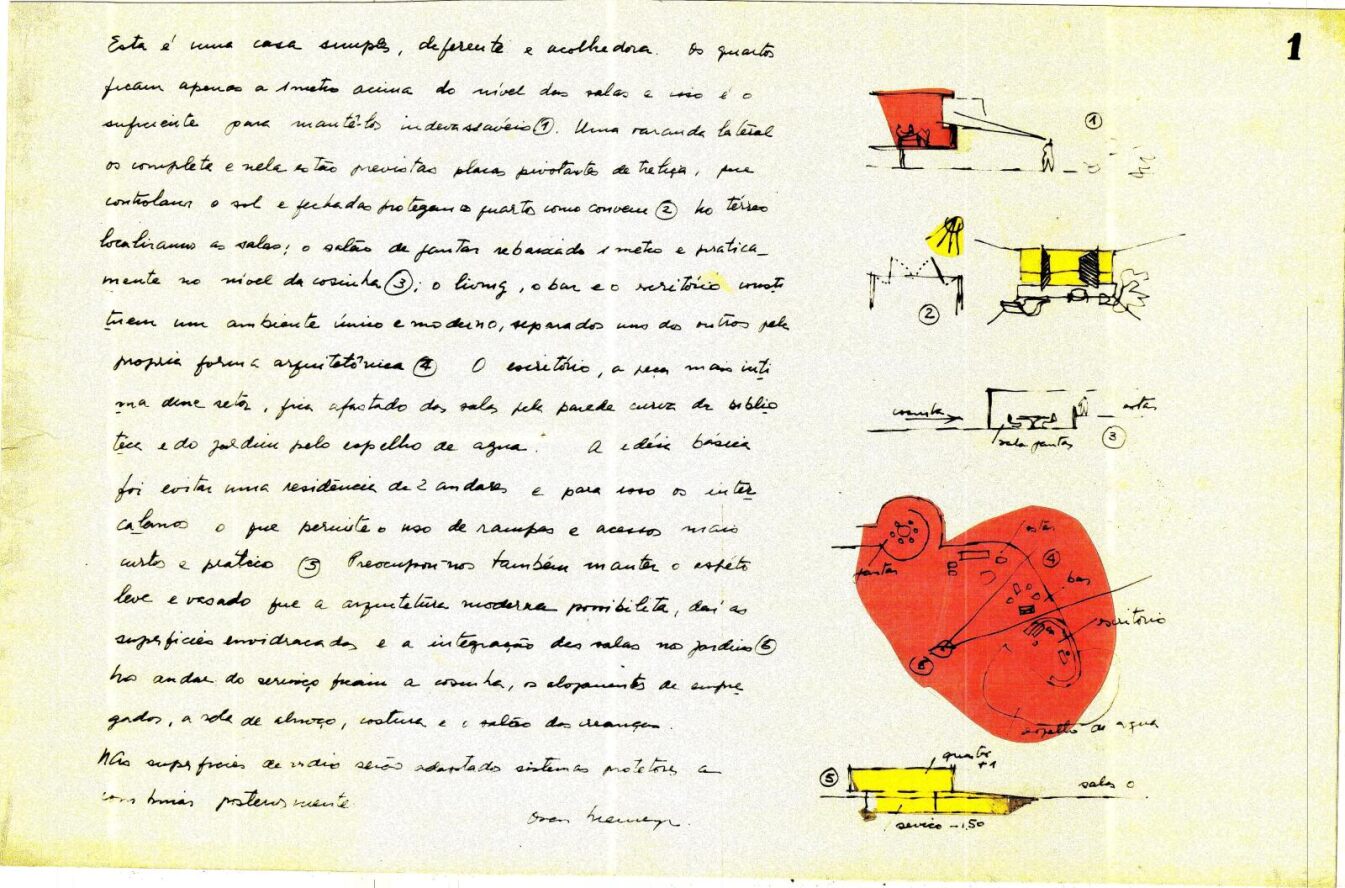 Esta é uma casa simples, deferente e acolhedora. Os quartos
ficam apenas a 1 metro acima do nível das salas e isso é o
suficiente para mantê-los indevassáveis ①. Uma varanda lateral
os completa e nela estão previstas placas pivotantes de treliça, que
controlam o sol e fechadas protegem os quartos como convem ② No térreo
localizamos as salas: o salão de jantar rebaixado 1 metro e pratica-
mente no nível da cosinha ③; o living, o bar e o escritório consti
tuem um ambiente único e moderno, separados uns dos outros pela
propria forma arquitetônica ④ O escritório, a peça mais inti
ma desse setor, fica afastado das salas pela parede curva da biblio
teca e do jardim pelo espelho de agua. A idéia básica
foi evitar uma residência de 2 andares e para isso os inter
calamos o que permite o uso de rampas e acessos mais
curtos e prático ⑤ Preocupou-nos também manter o aspéto
leve e vasado que a arquitetura moderna possibilita, daí as
superficies envidraçadas e a integração das salas no jardim ⑥
No andar do serviço ficam a cosinha, os alojamentos de empre
gados, a sala de almoço, costura e o salão das crianças.
Nas superficies de vidro serão adaptado sistemas protetores a
combinar posteriormente.
Oscar Niemeyer.
1
①
②
cosinha
estar
sala jantar
③
estar
④
jantar
bar
escritório
⑥
espelho de agua
quartos
+1
⑤
salas 0
serviço -1,50